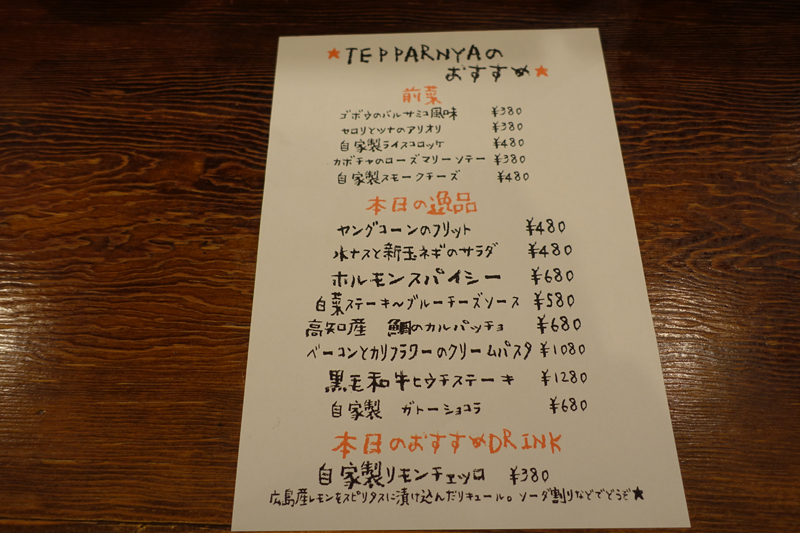 ★TEPPARNYAの
おすすめ★
前菜
ゴボウのバルサミコ風味 ¥380
セロリとツナのアリオリ ¥380
自家製ライスコロッケ ¥480
カボチャのローズマリーソテー ¥380
自家製スモークチーズ ¥480
本日の逸品
ヤングコーンのフリット ¥480
水ナスと新玉ネギのサラダ ¥480
ホルモンスパイシー ¥680
白菜ステーキ〜ブルーチーズソース ¥580
高知産 鯛のカルパッチョ ¥680
ベーコンとカリフラワーのクリームパスタ ¥1080
黒毛和牛ヒウチステーキ ¥1280
自家製 ガトーショコラ ¥680
本日のおすすめDRINK
自家製リモンチェッロ ¥380
広島産レモンをスピリタスに漬け込んだリキュール。ソーダ割りなどでどうぞ★